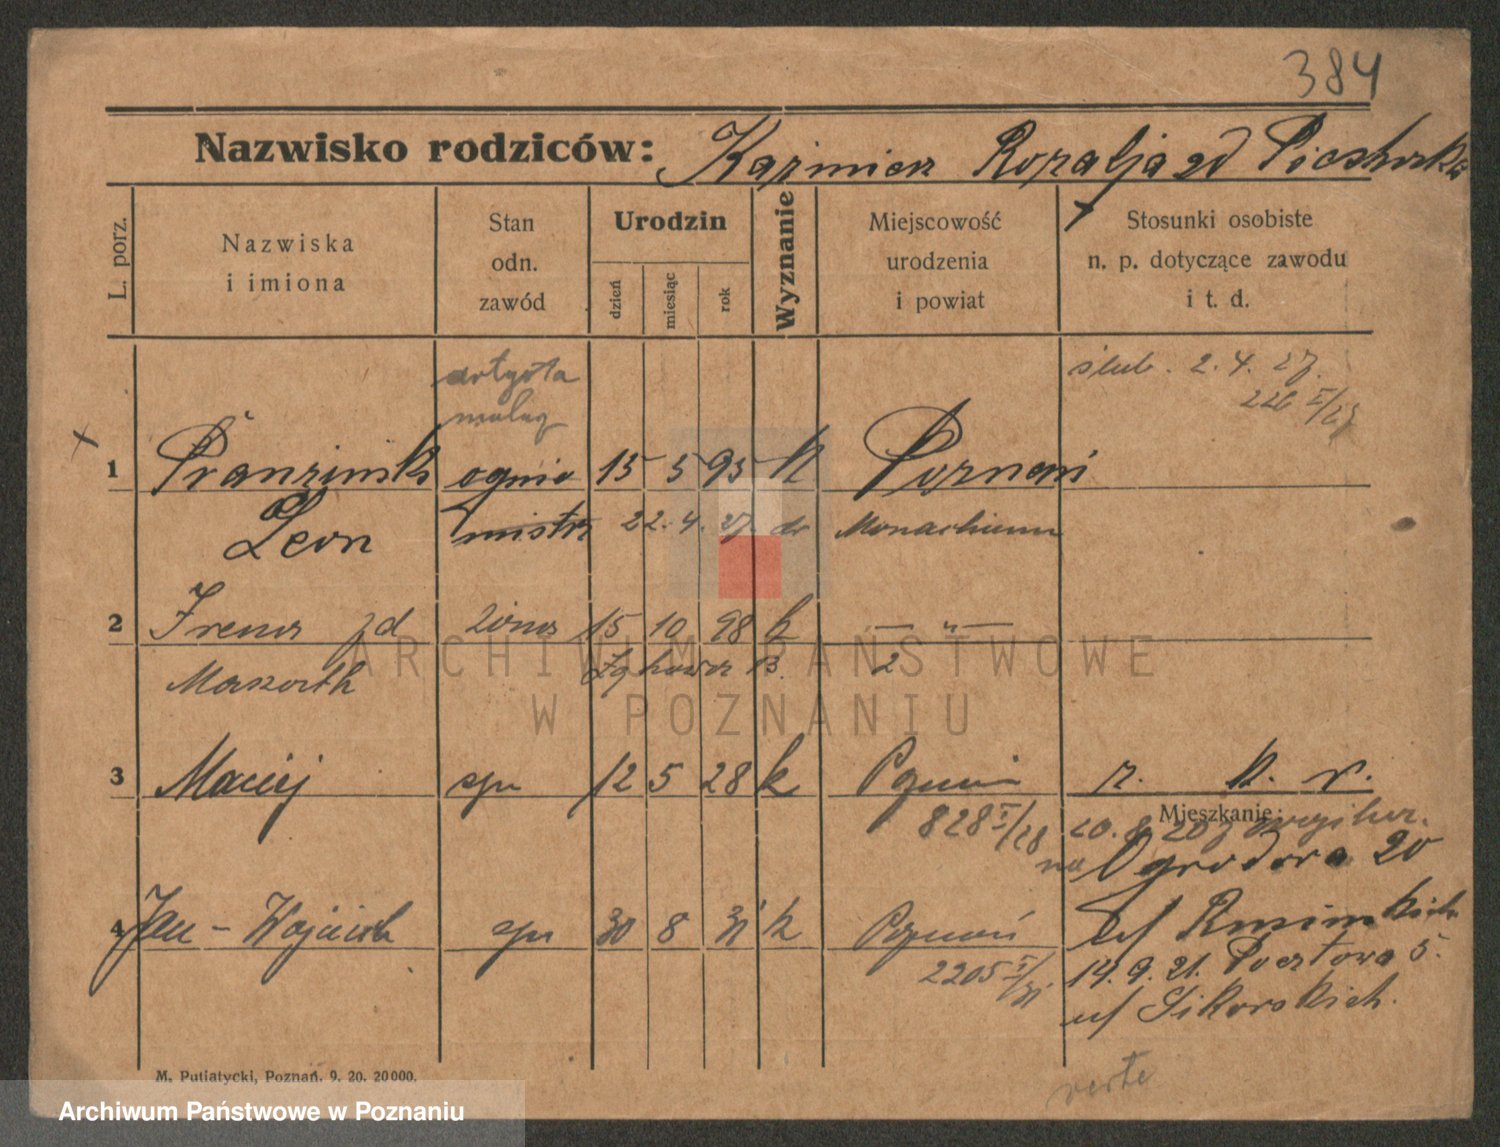 384
Nazwisko rodziców: Kaźmierz Rozalja zd
L. porz.
Nazwiska i imiona
Stan odn. zawód
Urodzin
dzień
miesiąc
rok
Wyznanie
Miejscowość urodzenia i powiat
Stosunki osobiste n. p. dotyczące zawodu i t. d.
artysta
ślub. 2. 4. 27.
1 ognio 15 5 95 k Poznań
Leon mistrz 22. 4. 27. do Monachium
2 Irena zd żona 15 10 98 k — " —
3 Maciej syn 12 5 28 k Poznań r. k. r.
828 I/28
Mieszkanie:
na Ogrodowa 20
4 Jan - Wojciech syn 30 8 31 k Poznań
2205 I/31
14. 9. 21. Pocztowa 5.
u/ Sikorskich.
verte
M. Putiatycki, Poznań. 9. 20. 20000.
ARCHIWUM PAŃSTWOWE
W POZNANIU
Archiwum Państwowe w Poznaniu